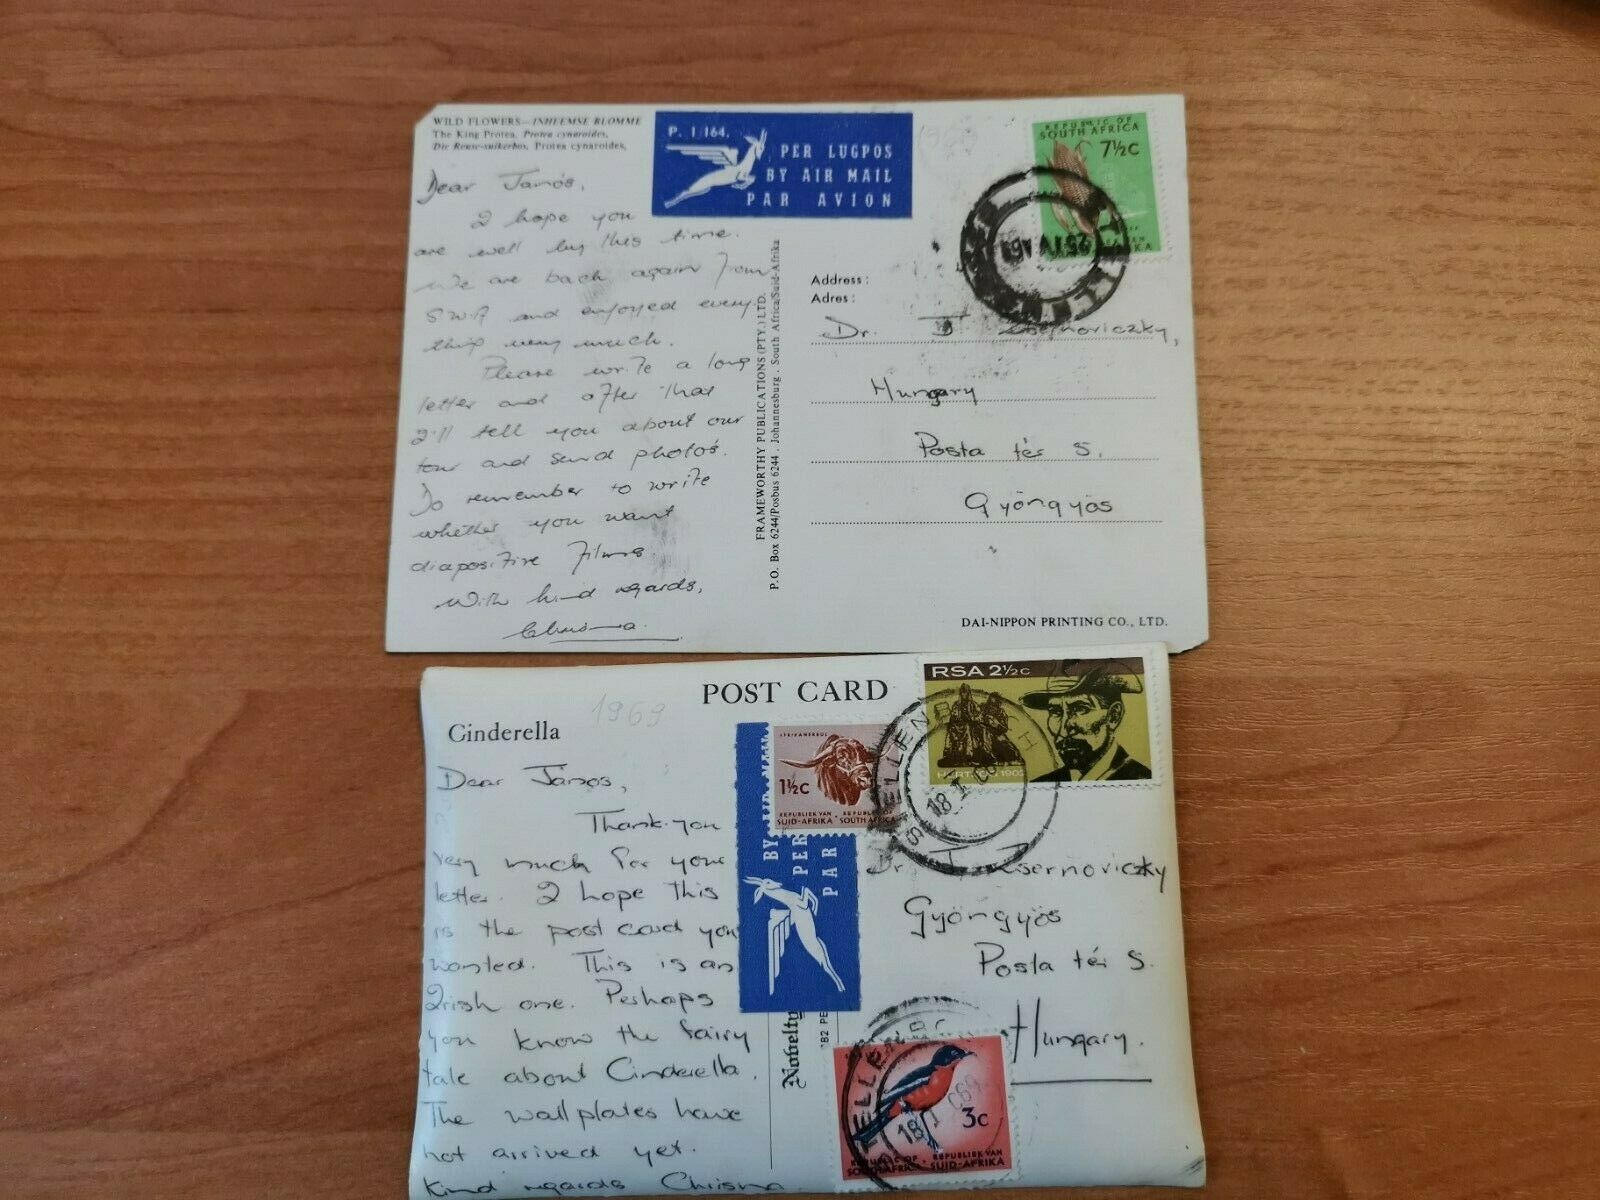 WILD FLOWERS—INHEEMSE BLOMME
The King Protea, Protea cynaroides,
Die Reuse-suikerbos, Protea cynaroides,
Dear Janós,
I hope you
are well by this time.
We are back again from
SWA and enjoyed every-
thing very much.
Please write a long
letter and after that
I'll tell you about our
tour and send photo's.
Do remember to write
whether you want
diapositive films
With kind regards,
Chrisma.
P. 1/164.
PER LUGPOS
BY AIR MAIL
PAR AVION
FRAMEWORTHY PUBLICATIONS (PTY.) LTD.
P.O. Box 6244/Posbus 6244 . Johannesburg . South Africa/Suid-Afrika
REPUBLIC OF
SOUTH AFRICA
7½C
25 IV
Address:
Adres:
Dr. J. Zsernoviczky,
Hungary
Posta tér 5.
Gyöngyös
DAI-NIPPON PRINTING CO., LTD.
POST CARD
1969
Cinderella
Dear János,
Thank-you
very much for your
letter. I hope this
is the post card you
wanted. This is an
Irish one. Perhaps
you know the fairy
tale about Cinderella.
The wall plates have
not arrived yet.
Kind regards Chrisma
AFRIKANERBUL
1½C
REPUBLIEK VAN REPUBLIC OF
SUID-AFRIKA SOUTH AFRICA
BY
PER
PAR
RSA 2½C
HERTZOG 1902
STELLENBOSCH
18 I 69
Dr. J. Zsernoviczky
Gyöngyös
Posta tér 5.
Hungary.
Novelty
3c
REPUBLIC OF REPUBLIEK VAN
SOUTH AFRICA SUID-AFRIKA
18 I 69